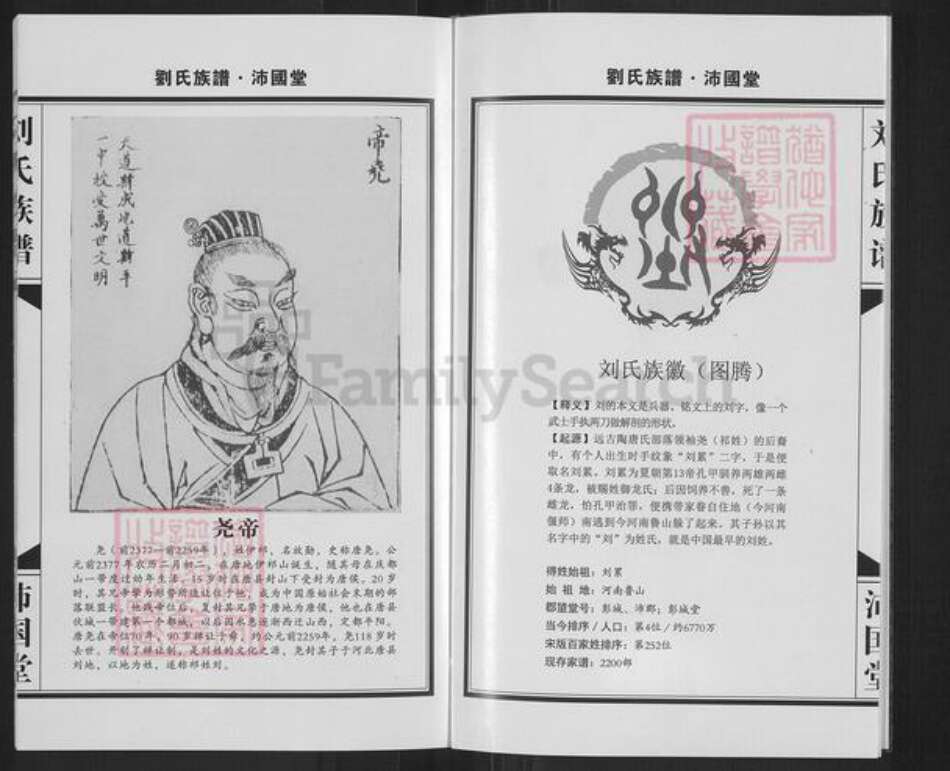 劉氏族譜·沛國堂
刘氏族谱
沛国堂
帝堯
天道
萬世文明
尧帝
尧（前2377—前2259年），姓伊祁，名放勋，史称唐尧。公
元前2377年农历二月初二，在唐地伊祁山诞生，随其母在庆都
山一带度过幼年生活。15岁时在唐县封山下受封为唐侯。20岁
时，其兄帝挚为形势所迫让位于他，成为中国原始社会末期的部
落联盟长。他践帝位后，复封其兄挚于唐地为唐侯，他也在唐县
伏城一带建第一个都城，以后因水患逐渐西迁山西，定都平阳。
唐尧在帝位70年，90岁禅让于舜，约公元前2259年，尧118岁时
去世。开创了禅让制，是刘姓的文化之源，尧封其子于河北唐县
刘地，以地为姓，遂称祁姓刘。
劉氏族譜·沛國堂
刘氏族谱
沛国堂
刘氏族徽（图腾）
【释义】刘的本文是兵器，铭文上的刘字，像一个
武士手执两刀做解剖的形状。
【起源】远古陶唐氏部落领袖尧（祁姓）的后裔
中，有个人出生时手纹象“刘累”二字，于是便
取名刘累。刘累为夏朝第13帝孔甲驯养两雄两雌
4条龙，被赐姓御龙氏；后因饲养不善，死了一条
雌龙，怕孔甲治罪，便携带家眷自住地（今河南
偃师）南逃到今河南鲁山躲了起来，其子孙以其
名字中的“刘”为姓氏，就是中国最早的刘姓。
得姓始祖：刘累
始 祖 地：河南鲁山
郡望堂号：彭城、沛郡；彭城堂
当今排序/人口：第4位/约6770万
宋版百家姓排序：第252位
现存家谱：2200部
FamilySearch